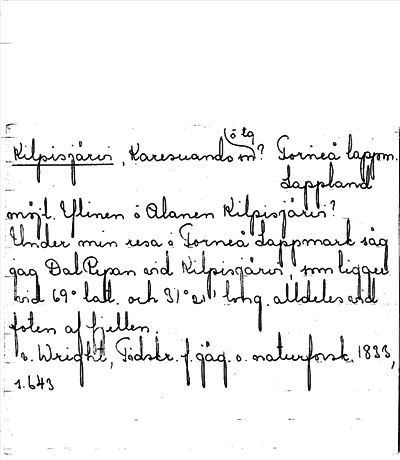 (ö lg
Kilpisjärvi, Karesuando sn? Torneå lappm.
Lappland
möjl. Ylinen o Alanen Kilpisjärvi?
Under min resa i Torneå Lappmark såg
jag DalRipan vid Kilpisjärvi, som ligger
vid 69° lat. och 31° 21' long. alldeles vid
foten af fjellen.
v. Wright, Tidskr. f. jäg. o. naturforsk. 1833,
1.643